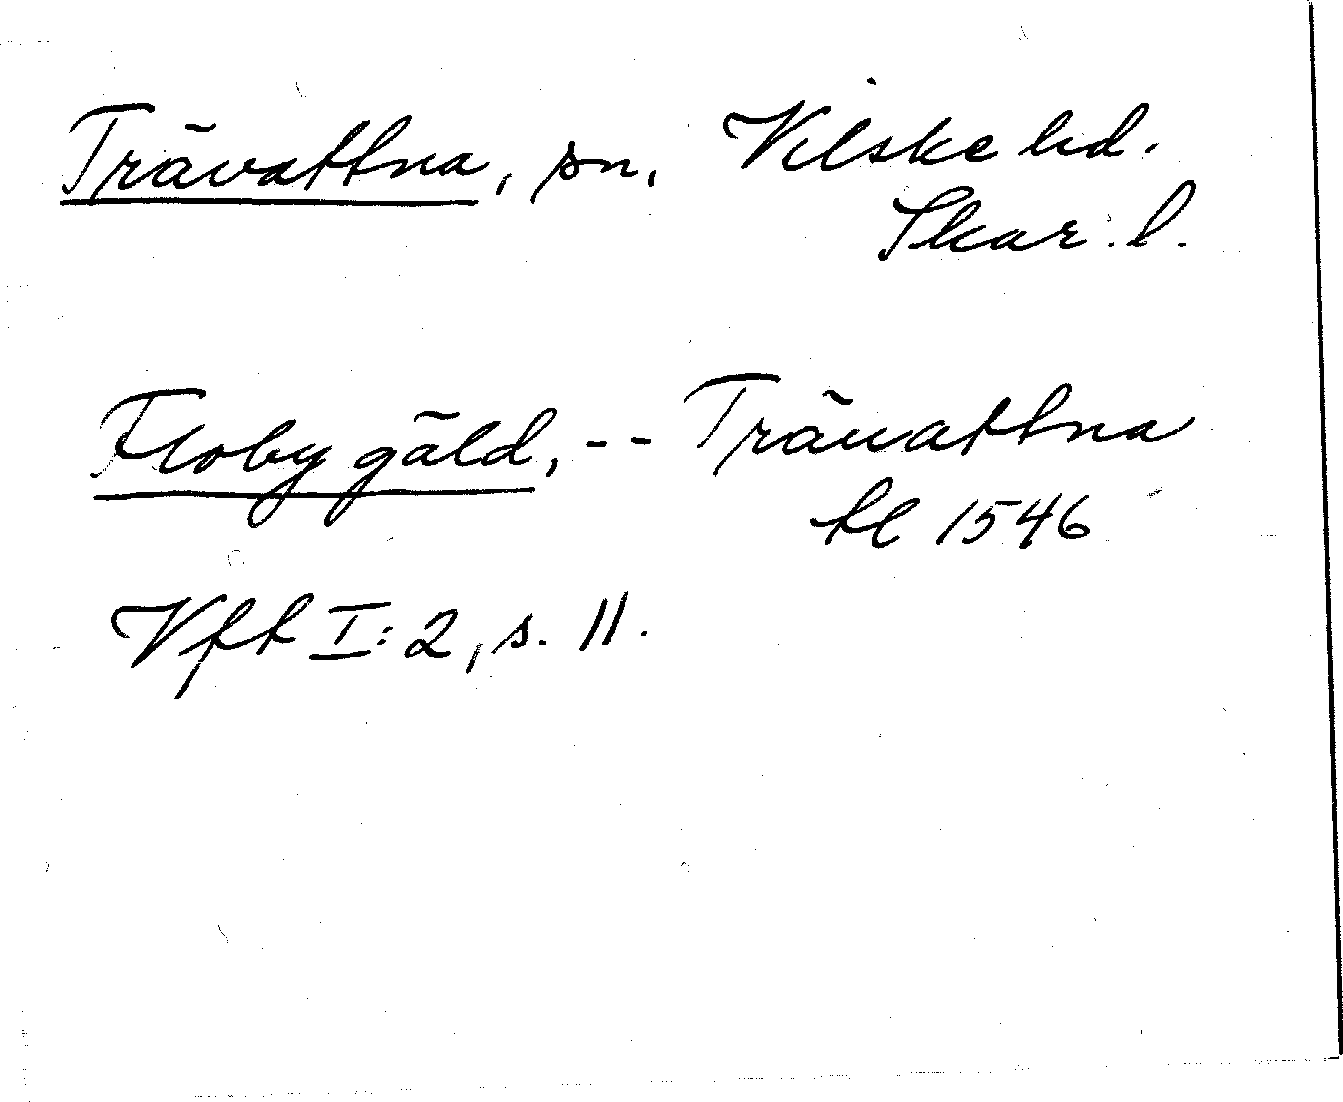 Trävattna, sn, Vilske hd.
Skar. l.
Floby gäld, -- Träuattna
kl 1546
Vfk I: 2, s. 11.